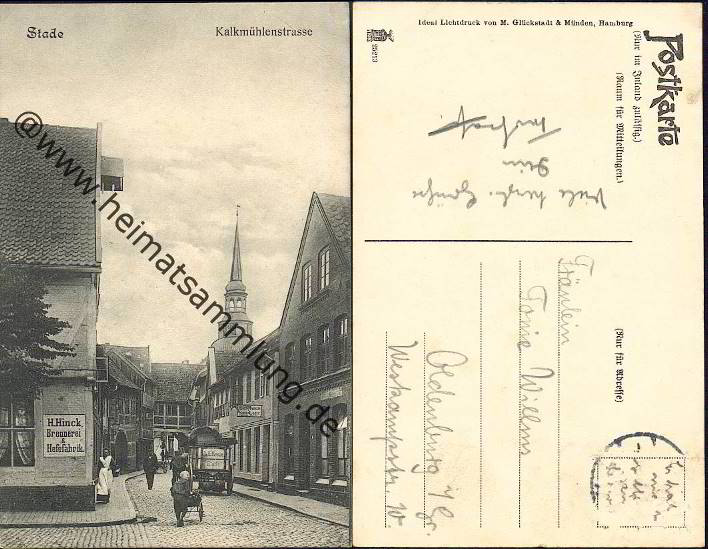 Stade
Kalkmühlenstrasse
@www.heimatsammlung.de
H. Hinck,
Brennerei
&
Hefefabrik.
Ideal Lichtdruck von M. Glückstadt & Münden, Hamburg
25213
Postkarte
(Nur im Inland zulässig.)
(Raum für Mitteilungen.)
Viele herzl. Grüße
Dein
(Nur für Adresse)
Fräulein
Tonie Willms
Oldenburg i/Gr.